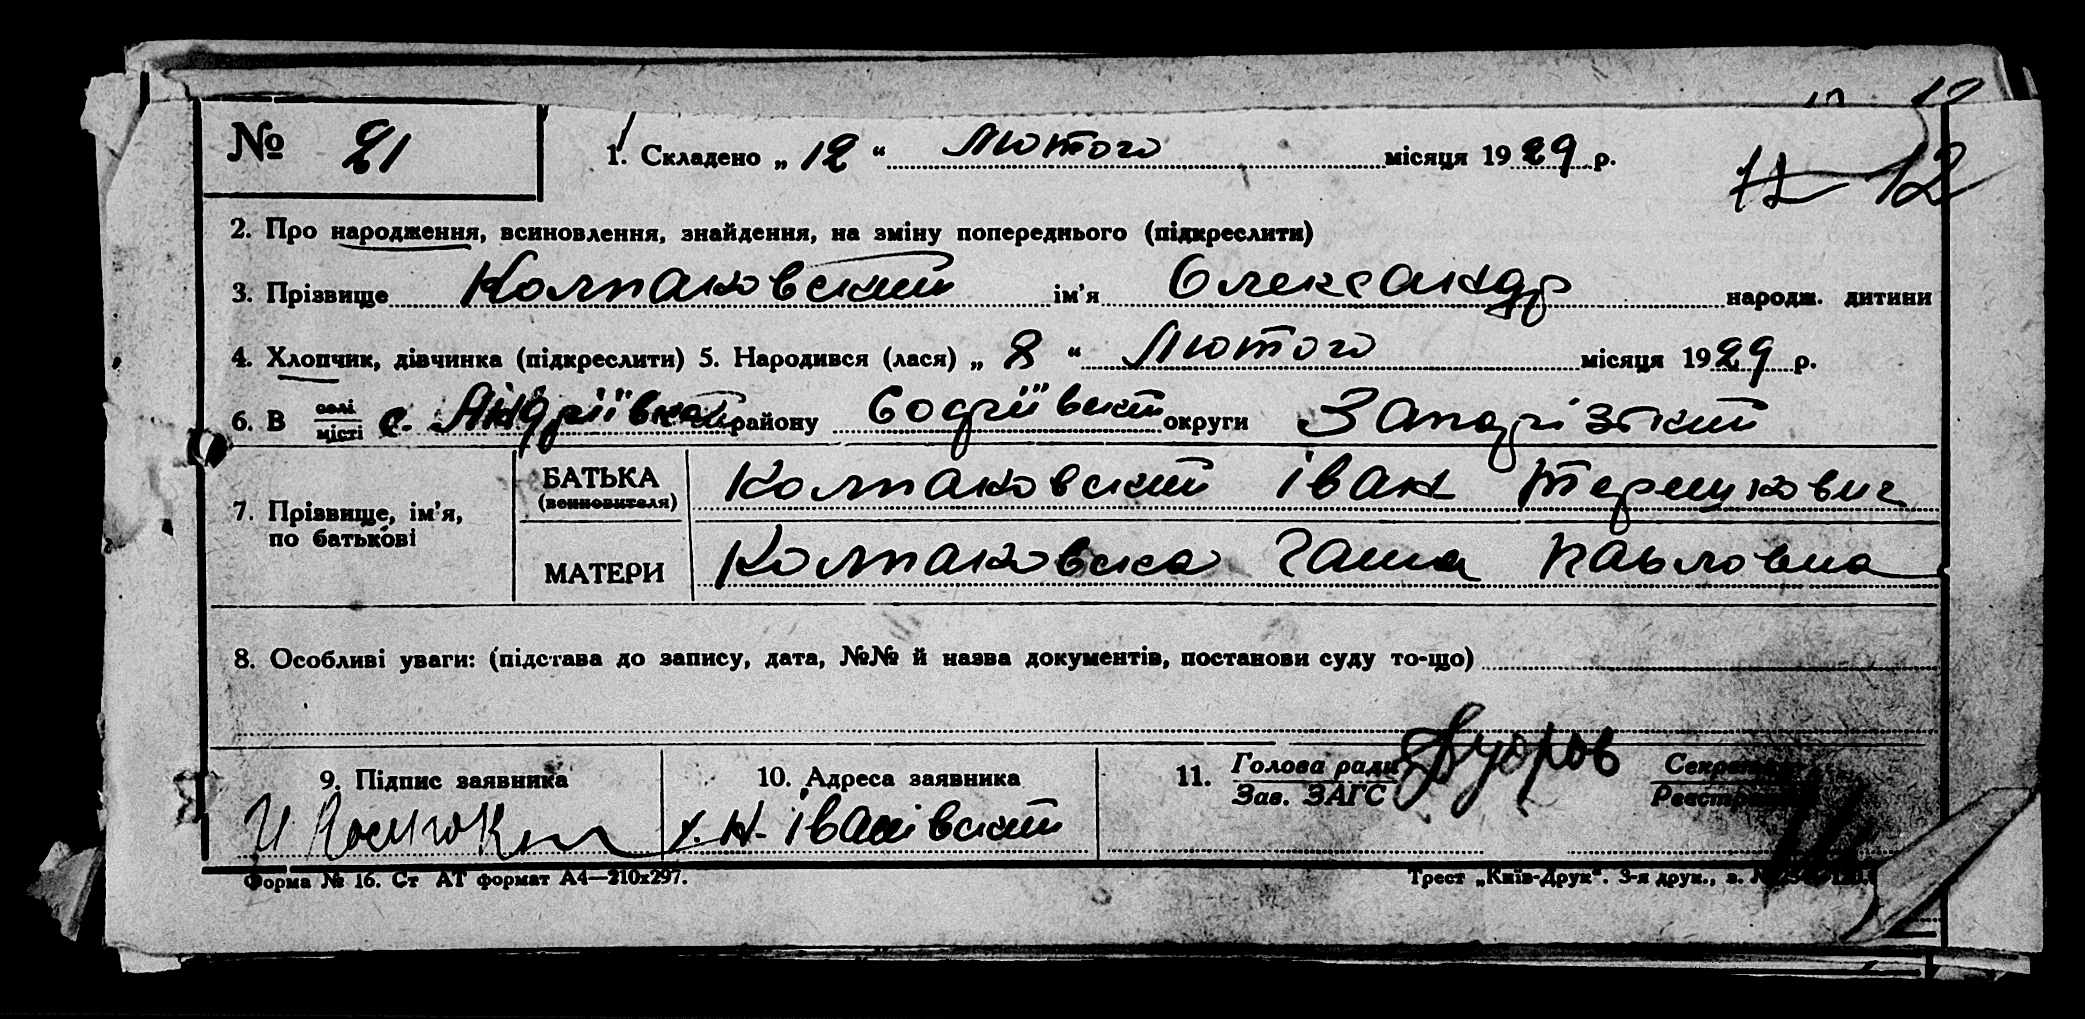 № 21
1. Складено „ 12 “ Лютого місяця 1929 р.
12 12
2. Про народження, всиновлення, знайдення, на зміну попереднього (підкреслити)
3. Прізвище Колпаковский ім'я Олександр народж. дитини
4. Хлопчик, дівчинка (підкреслити) 5. Народився (лася) „ 8 “ Лютого місяця 1929 р.
6. В селі місті с. Андріївка району Софіївский округи Запорізький
7. Прізвище, ім'я, по батькові
БАТЬКА (всиновителя) Колпаковский Іван
МАТЕРИ Колпаковска Ганна Павловна
8. Особливі уваги: (підстава до запису, дата, №№ й назва документів, постанови суду то-що)
9. Підпис заявника
10. Адреса заявника
х. Н. Іванівский
11. Голова ради
Зав. ЗАГС
Секретар
Реєстратор
Форма № 16. Ст АТ формат А4—210х297.
Трест „Київ-Друк“. 3-я друк., з. №